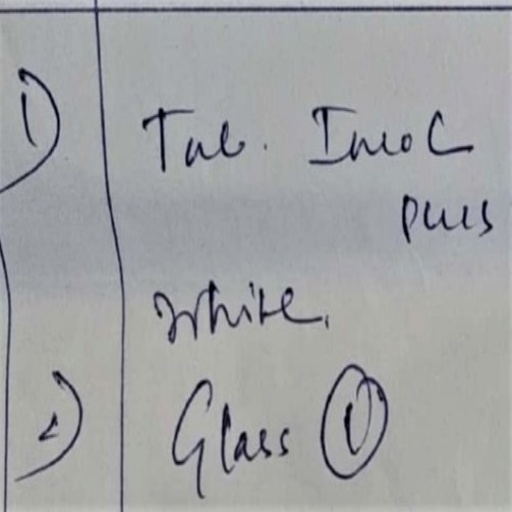 1) Tab. Imol
plus
White.
2) Glass ①